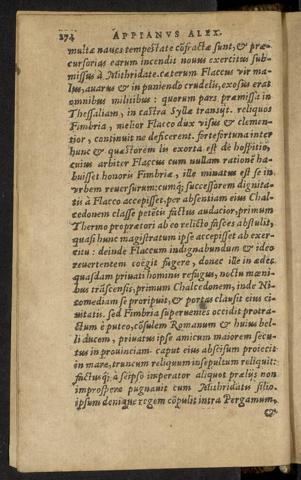 274 APPIANVS ALEX.
multæ naues tempestate cōfractæ sunt, & præ-
cursorias earum incendit nouus exercitus sub-
missus à Mithridate. cæterum Flaccus vir ma-
lus, auarus & in puniendo crudelis, exosus erat
omnibus militibus: quorum pars præmissa in
Thessaliam, in castra Syllæ transijt. reliquos
Fimbria, melior Flacco dux visus & clemen-
tior, continuit ne deficerent. forte fortuna inter
hunc & quæstorem lis exorta est de hospitio,
cuius arbiter Flaccus cum nullam rationē ha-
buisset honoris Fimbriæ, ille minatus est se in
vrbem reuersurum: cumq; successorem dignita-
tis à Flacco accepisset, per absentiam eius Chal-
cedonem classe petētis factus audacior, primum
Thermo proprætori ab eo relicto fasces abstulit,
quasi hunc magistratum ipse accepisset ab exer-
citu: deinde Flaccum indignabundum & ideo
reuertentem coëgit fugere, donec ille in ædes
quasdam priuati hominis refugus, noctu mœni-
bus trāscensis, primum Chalcedonem, inde Ni-
comediam se proripuit, & portas clausit eius ci-
uitatis. sed Fimbria superueniēs occidit protra-
ctum è puteo, cōsulem Romanum & huius bel-
li ducem, priuatus ipse amicum maiorem secu-
tus in prouinciam. caput eius abscisum proiecit
in mare, truncum reliquum insepultum reliquit:
factusq; à seipso imperator aliquot prælijs non
improspere pugnauit cum Mithridatis filio.
ipsum deniq; regem cōpulit intra Pergamum,
&